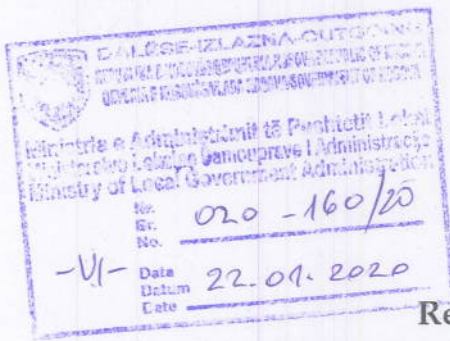 DALËSE-IZLAZNA-OUTGOING
Ministria e Administrimit të Pushtetit Lokal
Ministarstvo Lokalne Samouprave i Administracije
Ministry of Local Government Administration
Nr.
Br.
No. 020 -160/20
-VI- Data
Datum 22.01.2020
Date
Re